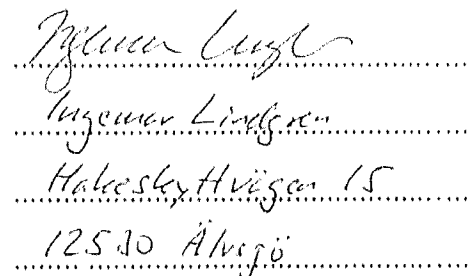 Ingemar Lindgren
Hakeskyttvägen 15
12530 Älvsjö